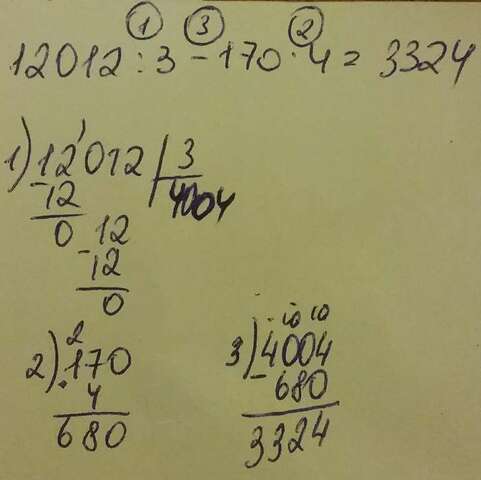 ① ③ ②
12012 : 3 - 170 · 4 = 3324
1) 12012 | 3
-12 4004
0 12
-12
0
2
2) 170
· 4
680
· 10 10
3) 4004
- 680
3324